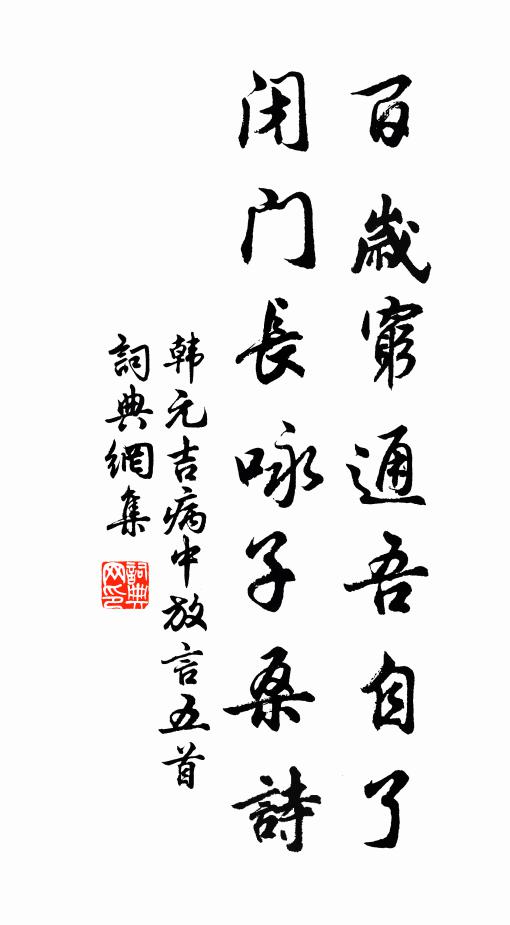 百歲窮通吾自了
闭門長咏子桑詩
韩元吉病中放言五首
詞典網集
詞典网印